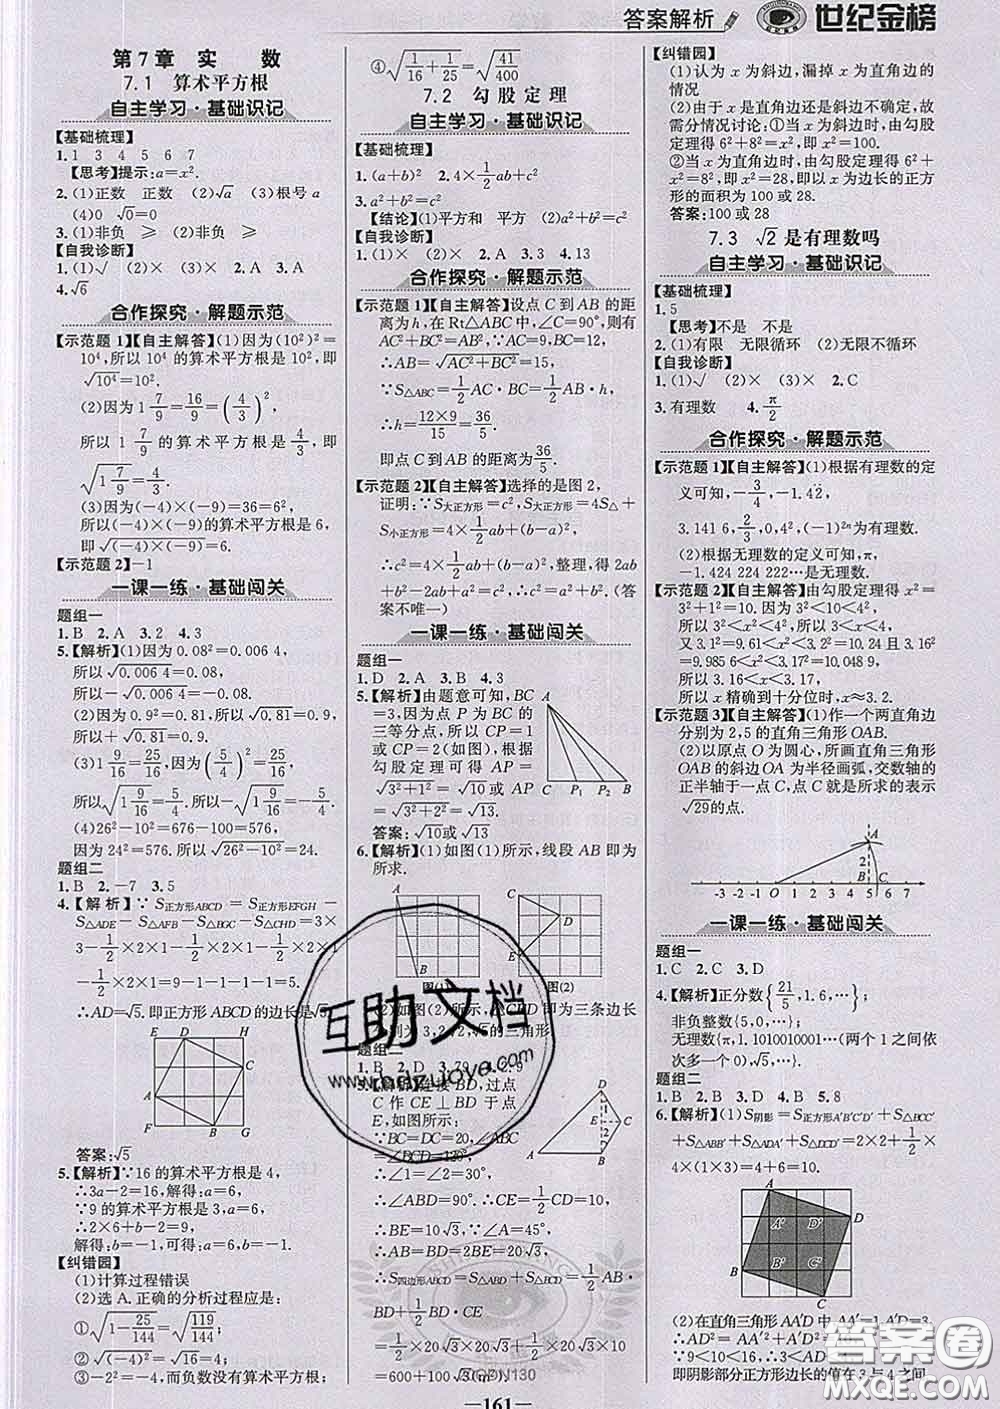 答案解析
世纪金榜
第7章 实 数
7.1 算术平方根
自主学习·基础识记
【基础梳理】
1.1 3 4 5 6 7
【思考】提示:a=x².
2.(1)正数 正数 (2)√a (3)根号a
(4)0 √0=0
3.(1)非负 ≥ (2)非负 ≥
【自我诊断】
1.(1)√ (2)× (3)× 2.A 3.A
4.√6
合作探究·解题示范
【示范题1】【自主解答】(1)因为(10²)²=
10⁴,所以10⁴的算术平方根是10²,即
√(10⁴)=10².
(2)因为1 7/9=16/9=(4/3)²,
所以1 7/9的算术平方根是4/3,即
√(1 7/9)=4/3.
(3)因为(-4)×(-9)=36=6²,
所以(-4)×(-9)的算术平方根是6,
即√((-4)×(-9))=6.
【示范题2】-1
一课一练·基础闯关
题组一
1.B 2.A 3.2 4.3
5.【解析】(1)因为0.08²=0.006 4,
所以√(0.006 4)=0.08,
所以-√(0.006 4)=-0.08.
(2)因为0.9²=0.81,所以√0.81=0.9,
所以+√0.81=0.9.
(3)1 9/16=25/16,因为(5/4)²=25/16,
所以√(1 9/16)=5/4,所以-√(1 9/16)=-5/4.
(4)26²-10²=676-100=576,
因为24²=576,所以√(26²-10²)=24.
题组二
1.B 2.-7 3.5
4.【解析】∵S正方形ABCD=S正方形EFGH-
S△ADE-S△AFB-S△BGC-S△CHD=3×
3-1/2×2×1-1/2×2×1-1/2×2×1
-1/2×2×1=9-1-1-1-1=5,
∴AD=√5.即正方形ABCD的边长是√5.
E D H
C
A
F B G
答案:√5
5.【解析】∵16的算术平方根是4,
∴3a-2=16,解得:a=6,
∵9的算术平方根是3,a=6,
∴2×6+b=9,
解得:b=-1,可得:a=6,b=-1.
【纠错园】
(1)计算过程错误
(2)选A.正确的分析过程应是:
①√(1-25/144)=√(119/144)=√119/12;
②√((-4)²)=√16=4;
③-2²=-4,而负数没有算术平方根;
④√(1/16+1/25)=√(41/400)
7.2 勾股定理
自主学习·基础识记
【基础梳理】
1.(a+b)² 2.4×1/2ab+c²
3.a²+b²=c²
【结论】(1)平方和 平方 (2)a²+b²=c²
【自我诊断】
1.(1)× (2)× 2.A 3.3 4.13
合作探究·解题示范
【示范题1】【自主解答】设点C到AB的距
离为h,在Rt△ABC中,∠C=90°,则有
AC²+BC²=AB²,∵AC=9,BC=12,
∴AB=√(AC²+BC²)=15,
∵S△ABC=1/2AC·BC=1/2AB·h,
∴h=12×9/15=36/5.
即点C到AB的距离是36/5.
【示范题2】【自主解答】选择的是图2,
证明:∵S大正方形=c²,S大正方形=4S△+
S小正方形=4×1/2ab+(b-a)²,
∴c²=4×1/2ab+(b-a)²,整理,得2ab
+b²-2ab+a²=c²,∴c²=a²+b².(答
案不唯一)
一课一练·基础闯关
题组一
1.D 2.A 3.B 4.3
5.【解析】由题意可知,BC
=3,因为点P为BC的
三等分点,所以CP=1
或CP=2(如图),根据
勾股定理可得AP=
√(3²+1²)=√10或AP
=√(3²+2²)=√13.
A
C P₁ P₂ B
答案:√10或√13
6.【解析】(1)如图(1)所示,线段AB即为
所求.
A
B
图(1)
C
D
E
图(2)
(2)如图(2)所示,△CED即为三条边长
分别为3,2√2,√5的三角形.
题组二
1.B 2.D 3.79 4.2.9
5.【解析】连接BD,过点
C作CE⊥BD于点
E,如图所示:
∵BC=DC=20,∠ABC
=∠BCD=120°,
∴∠ABD=90°.∴CE=1/2CD=10,
∴BE=10√3,∵∠A=45°,
∴AB=BD=2BE=20√3,
∴S四边形ABCD=S△ABD+S△BCD=1/2AB·
BD+1/2BD·CE
=1/2×20√3×20√3+1/2×20√3×10
=600+100√3(m²).
【纠错园】
(1)认为x为斜边,漏掉x为直角边的
情况
(2)由于x是直角边还是斜边不确定,故
需分情况讨论:①当x为斜边时,由勾股
定理得6²+8²=x²,即x²=100.
②当x为直角边时,由勾股定理得6²+
x²=8²,即x²=28,即以x为边长的正方
形的面积为100或28.
答案:100或28
7.3 √2是有理数吗
自主学习·基础识记
【基础梳理】
1.5
【思考】不是 不是
2.(1)有限 无限循环 (2)无限不循环
【自我诊断】
1.(1)√ (2)× (3)× 2.C
3.有理数 4.π/2
合作探究·解题示范
【示范题1】【自主解答】(1)根据有理数的定
义可知,-3/4,-1.42,
3.141 6,2/3,0,4²,(-1)²ⁿ为有理数.
(2)根据无理数的定义可知,π,
-1.424 224 222…是无理数.
【示范题2】【自主解答】由勾股定理得x²=
3²+1²=10.因为3²<10<4²,
所以3²<x²<4².所以3<x<4.
又3.1²=9.61<x²<3.2²=10.24且3.16²
=9.985 6<x²<3.17²=10.048 9,
所以3.16<x<3.17.
所以x精确到十分位时,x≈3.2.
【示范题3】【自主解答】(1)作一个两直角边
分别为2,5的直角三角形OAB.
(2)以原点O为圆心,所画直角三角形
OAB的斜边OA为半径画弧,交数轴的
正半轴于一点C,点C就是所求的表示
√29的点.
A
2
B C
-3 -2 -1 0 1 2 3 4 5 6 7
一课一练·基础闯关
题组一
1.C 2.C 3.D
4.【解析】正分数{21/5,1.6,…};
非负整数{5,0,…};
无理数{π,1.1010010001…(两个1之间
依次多一个0),√5,…}.
题组二
1.B 2.B 3.D 4.B 5.8
6.【解析】(1)S阴影=S正方形A′B′C′D′+S△BCC′
+S△ABB′+S△ADA′+S△DCD′=2×2+1/2×
4×(1×3)=4+6=10.
A
A′ D′ D
B′ C′
B
C
(2)在直角三角形AA′D中,AA′=1,A′D=3,
∴AD²=AA′²+A′D²=1²+3²=10.
∵9<10<16,∴3<AD<4.
即阴影部分正方形边长的值在3与4之间
-161-
互助文档
www.hdzuoye.com
答案圈
MXQE.COM